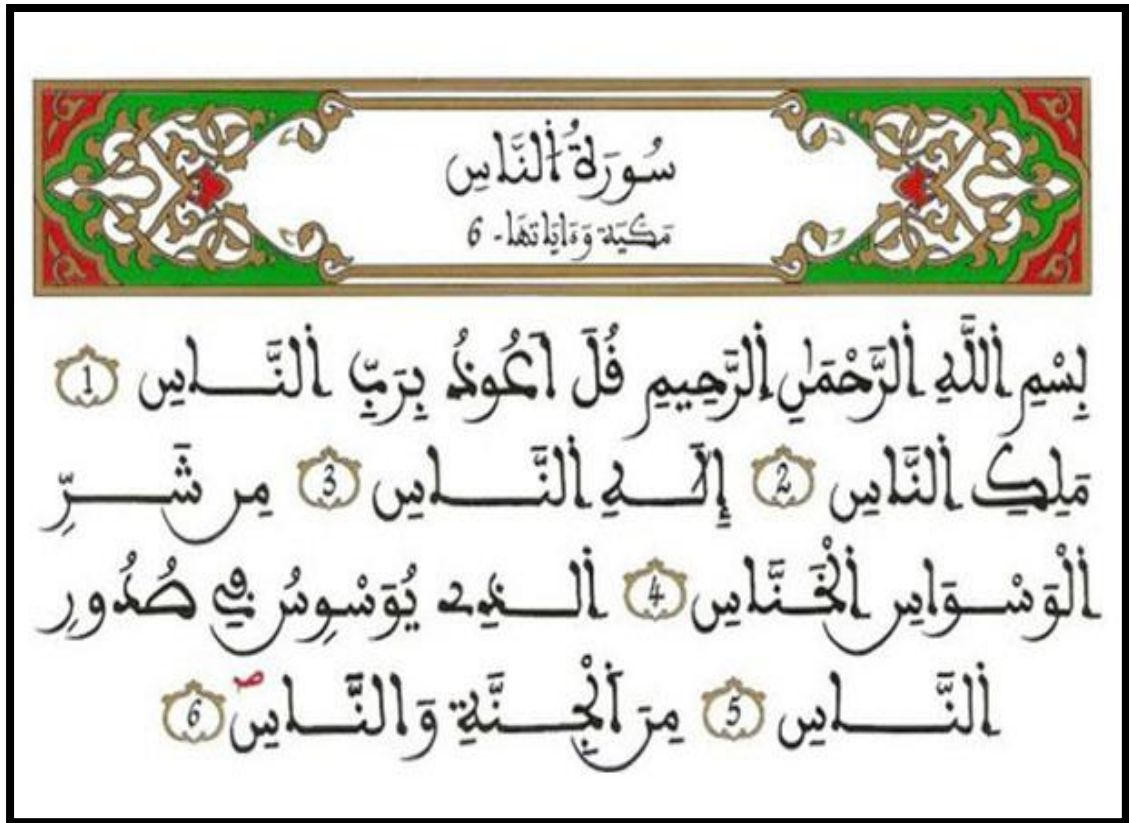 سُورَةُ اَ۬لنَّاسِ
مَكِّيَّة وَءَايَاتهَا - 6
بِسْمِ اِ۬للَّهِ اِ۬لرَّحْمَٰنِ اِ۬لرَّحِيمِ قُلَ اَعُوذُ بِرَبِّ اِ۬لنَّاسِ 1
مَلِكِ اِ۬لنَّاسِ 2 إِلَٰهِ اِ۬لنَّاسِ 3 مِن شَرِّ
اِ۬لْوَسْوَاسِ اِ۬لْخَنَّاسِ 4 اِ۬لذِے يُوَسْوِسُ فِے صُدُورِ
اِ۬لنَّاسِ 5 مِنَ اَ۬لْجِنَّةِ وَالنَّاسِ ص 6